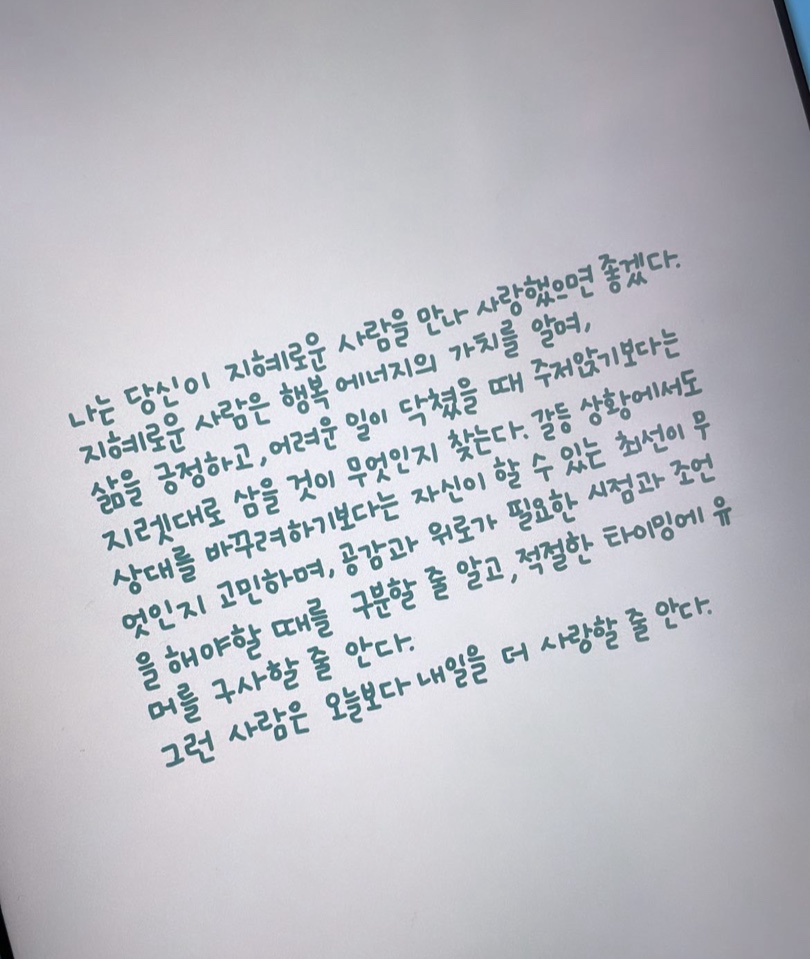 나는 당신이 지혜로운 사람을 만나 사랑했으면 좋겠다.
지혜로운 사람은 행복 에너지의 가치를 알며,
삶을 긍정하고, 어려운 일이 닥쳤을 때 주저앉기보다는
지렛대로 삼을 것이 무엇인지 찾는다. 갈등 상황에서도
상대를 바꾸려하기보다는 자신이 할 수 있는 최선이 무
엇인지 고민하며, 공감과 위로가 필요한 시점과 조언
을 해야할 때를 구분할 줄 알고, 적절한 타이밍에 유
머를 구사할 줄 안다.
그런 사람은 오늘보다 내일을 더 사랑할 줄 안다.